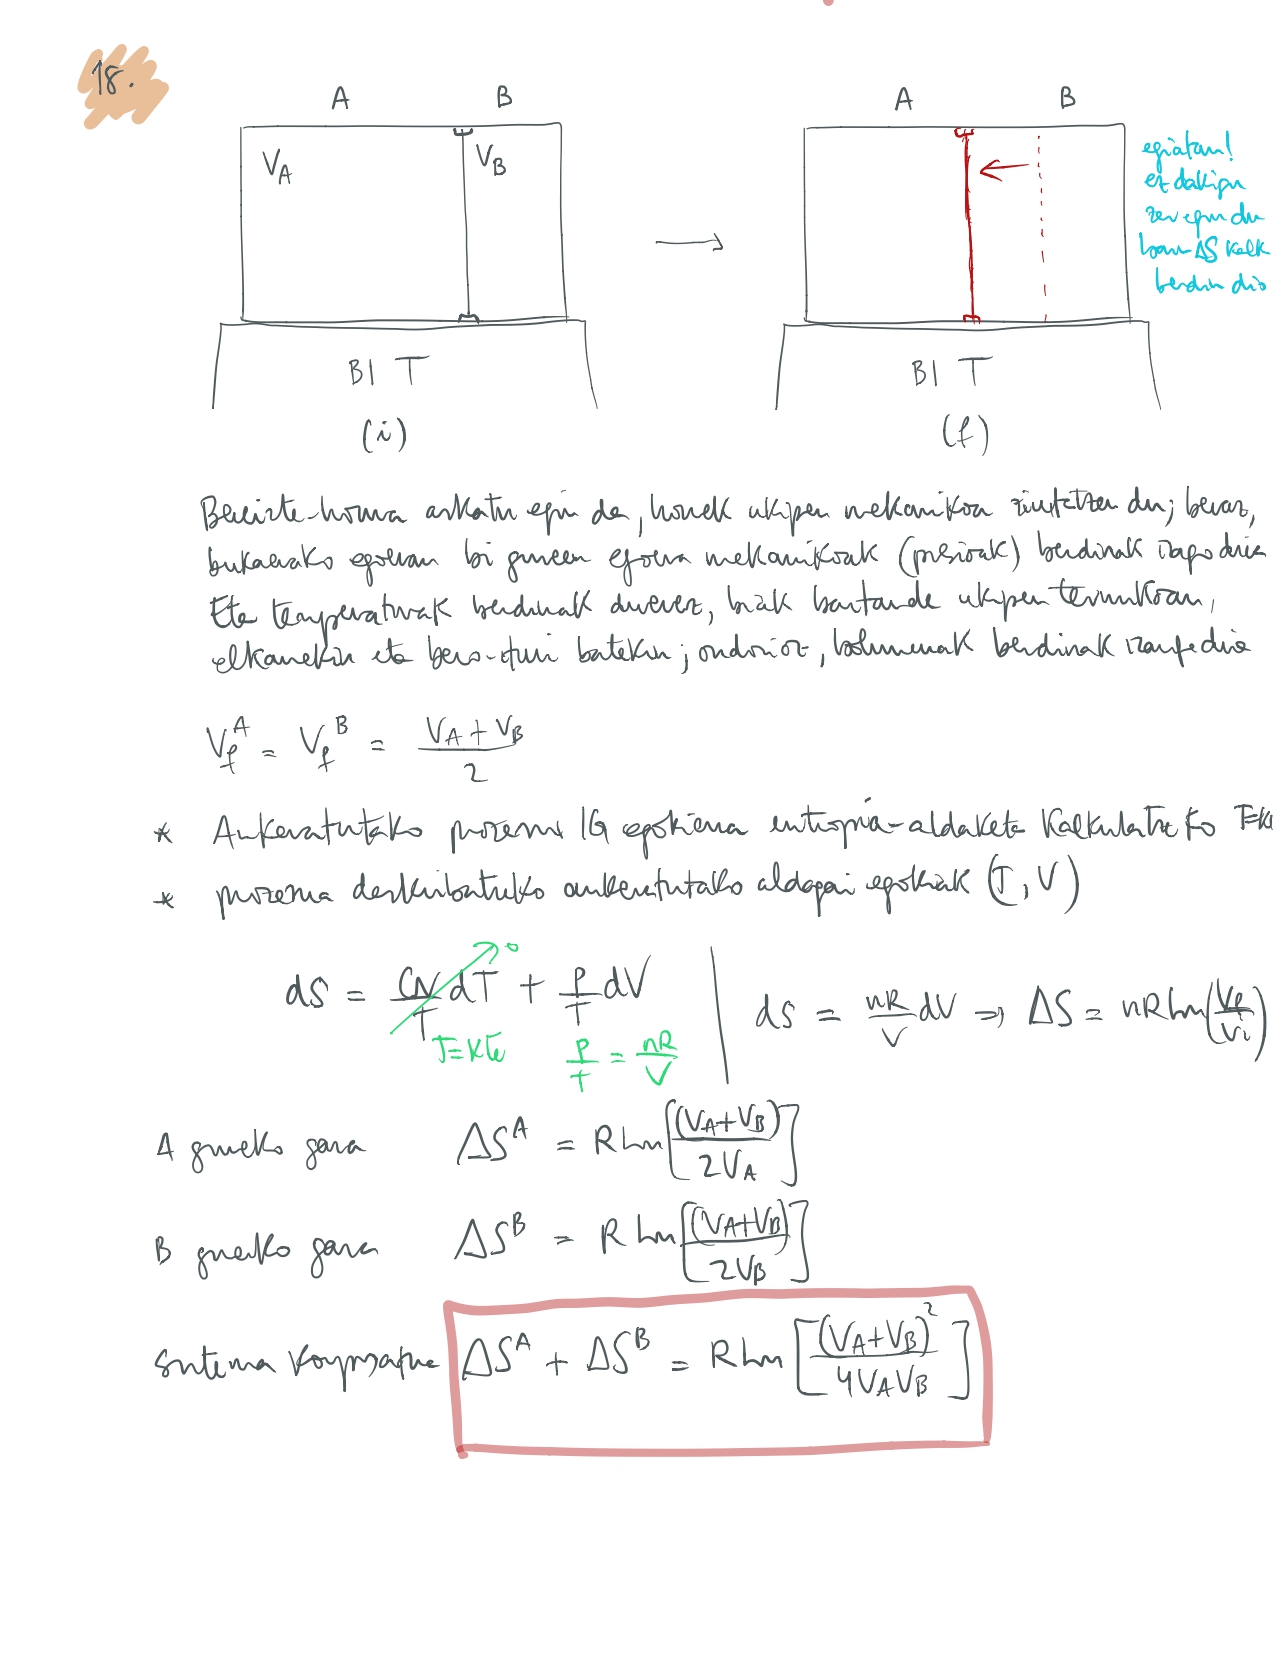 18.
A B
V_A V_B
BI T
(i)
A B
egiatan!
ez dakigu
zer egin du
baina ΔS kalk
berdin dio
BI T
(f)
askatu egin da, honek ukipen mekanikoa zuzentzen du; beraz,
bukaerako egoeran bi guneen egoera mekanikoak (presioak) berdinak izango dira
Eta temperaturak berdinak direnez, biak baitaude ukipen termikoan,
elkarrekin eta bero-iturri batekin; ondorioz, bolumenak berdinak izango dira
V_f^A = V_f^B = (V_A + V_B)/2
* Aukeratutako prozesua IG egokiena entropia-aldaketa kalkulatzeko T=k
* prozesua deskribatzeko aukeratutako aldagai egokiak (T, V)
dS = C_V/T dT + P/T dV | dS = nR/V dV => ΔS = nR Ln(V_f/V_i)
0
T=kte P/T = nR/V
A guneko gasa ΔS^A = R Ln[(V_A+V_B)/2V_A]
B guneko gasa ΔS^B = R Ln[(V_A+V_B)/2V_B]
Sistema konposatua ΔS^A + ΔS^B = R Ln[(V_A+V_B)^2/4V_AV_B]